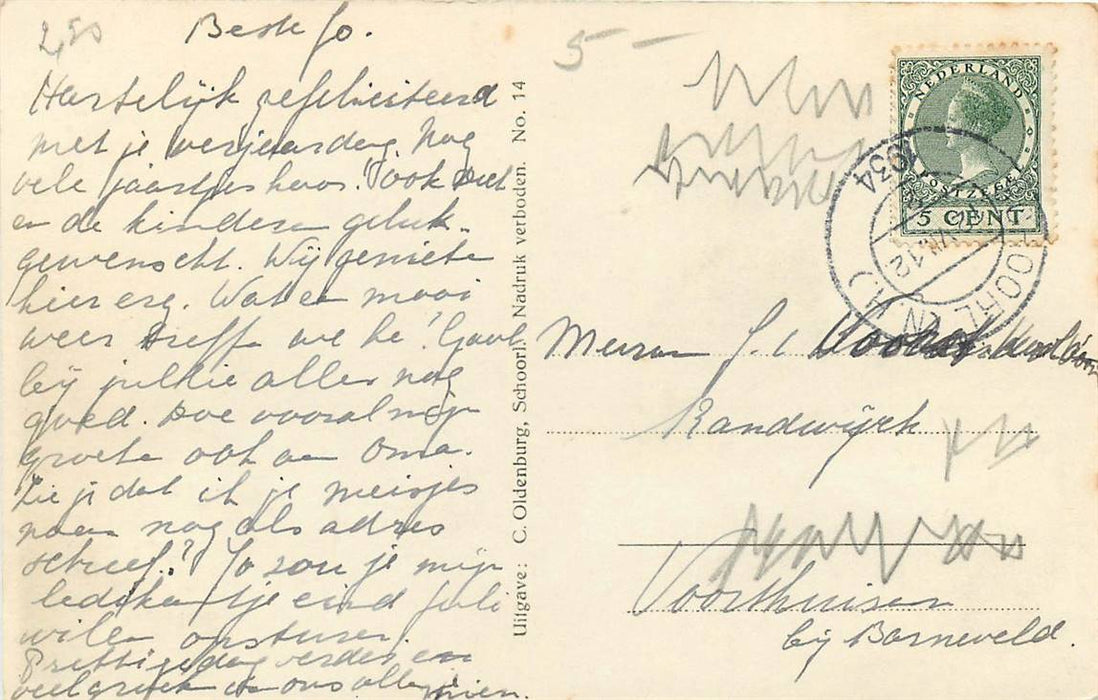 2,50
Beste Jo.
Hartelijk gefeliciteerd
met je verjaardag. Nog
vele jaartjes hoor. Ook Piet
en de kinderen geluk-
gewenscht. Wij genieten
hier erg. Wat een mooi
weer treffen we he! Gaat
bij jullie alles nog
goed. Doe vooral mijn
groeten ook aan Oma.
Zie je dat ik je meisjes
naam nog als adres
schreef? Jo zou je mijn
ledikantje eind Juli
willen opsturen.
Prettige dag verder en
veel groeten van ons allen
Uitgave: C. Oldenburg, Schoorl. Nadruk verboden. No. 14
5 –
NEDERLAND
POSTZEGEL
5 CENT
SCHOORL (N.H.)
1934
Mevrouw
Randwijck
Voorthuizen
bij Barneveld.